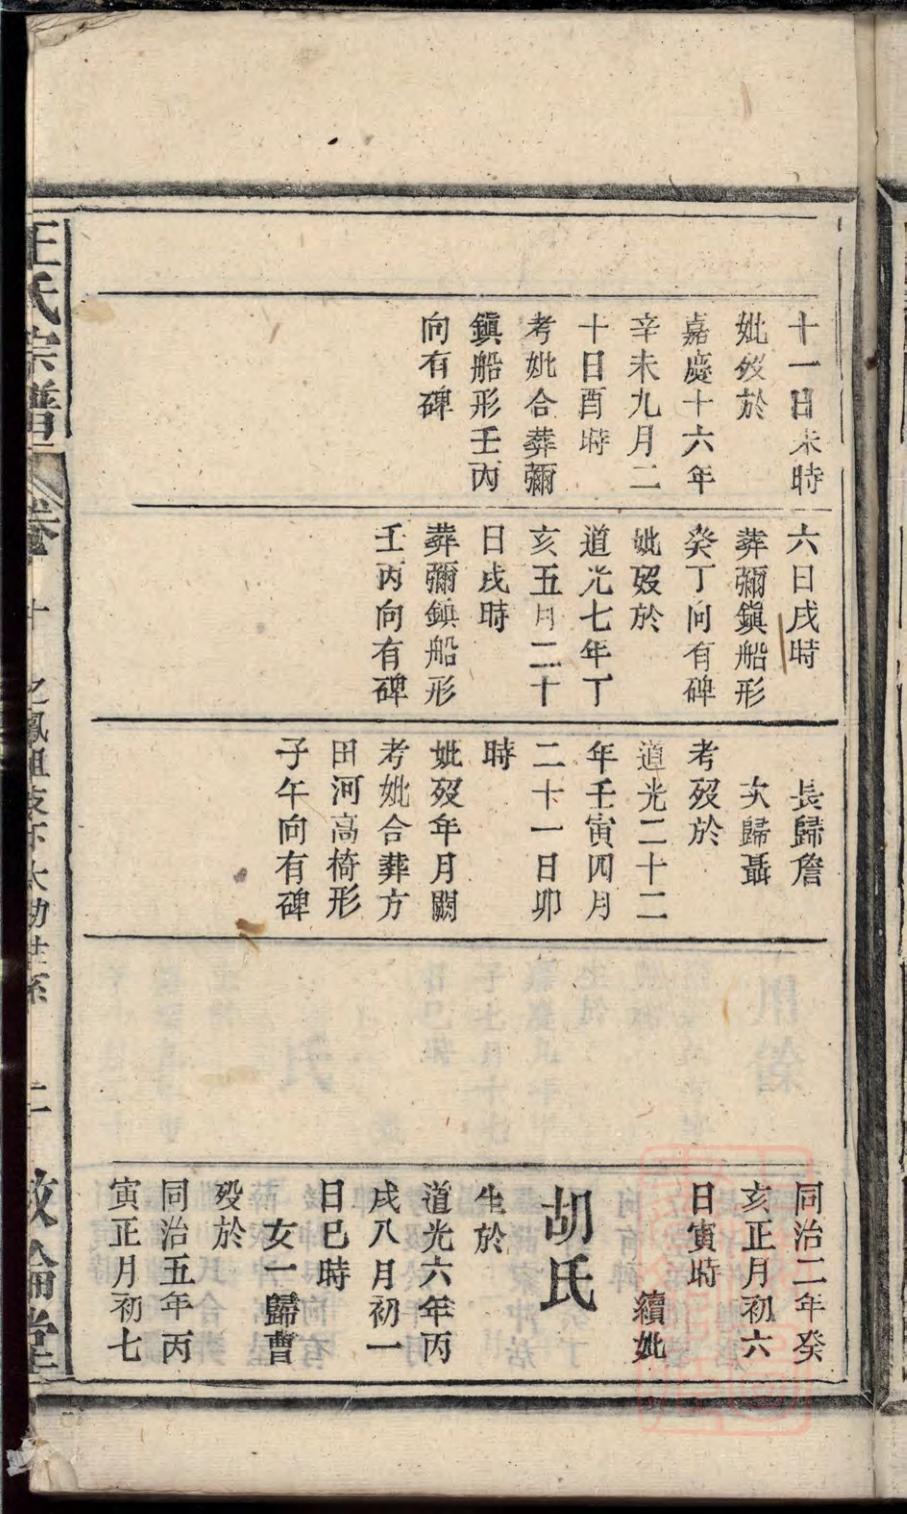 十一日未時
妣歿於
嘉慶十六年
辛未九月二
十日酉時
考妣合葬彌
鎭船形壬丙
向有碑
六日戌時
葬彌鎭船形
癸丁向有碑
妣歿於
道光七年丁
亥五月二十
日戌時
葬彌鎭船形
壬丙向有碑
長歸詹
次歸聶
考歿於
道光二十二
年壬寅四月
二十一日卯
時
妣歿年月闕
考妣合葬方
田河高椅形
子午向有碑
同治二年癸
亥正月初六
日寅時
續妣
胡氏
生於
道光六年丙
戌八月初一
日巳時
女一歸曹
歿於
同治五年丙
寅正月初七
王氏宗譜
卷 十 之鳳祖支下大勳世系 二
敦倫堂